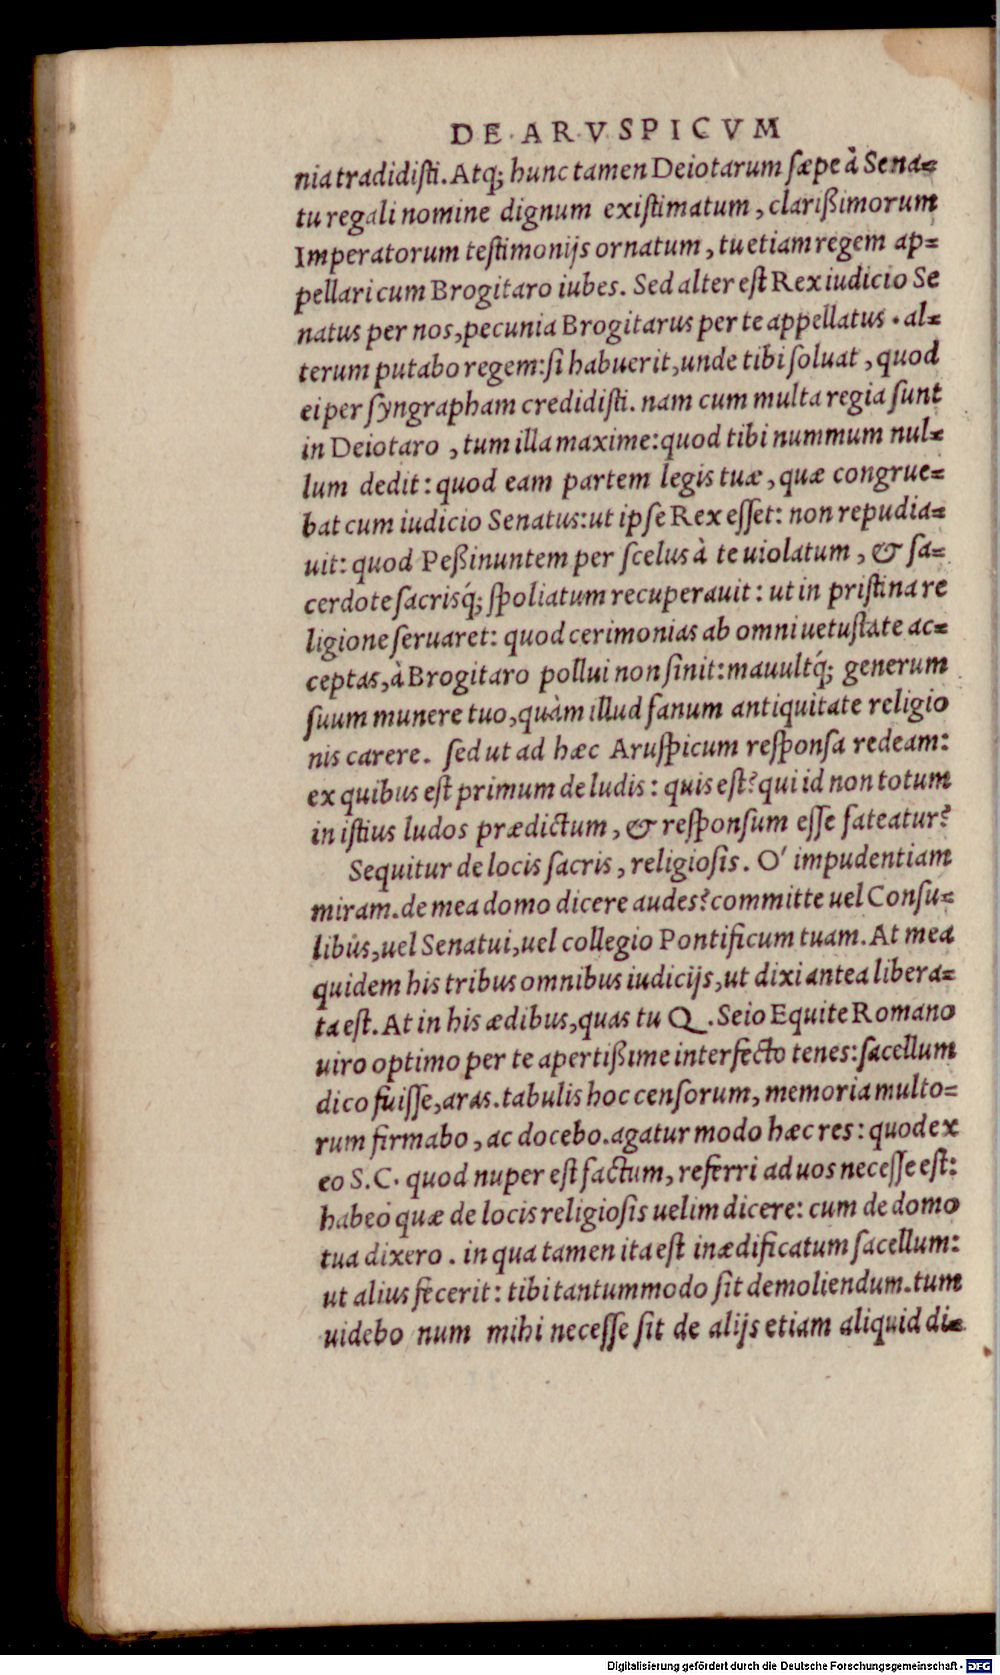 DE ARVSPICVM
nia tradidisti. Atq; hunc tamen Deiotarum sæpe à Sena=
tu regali nomine dignum existimatum, clarißimorum
Imperatorum testimonijs ornatum, tu etiam regem ap=
pellari cum Brogitaro iubes. Sed alter est Rex iudicio Se
natus per nos, pecunia Brogitarus per te appellatus. al=
terum putabo regem: si habuerit, unde tibi soluat, quod
ei per syngrapham credidisti. nam cum multa regia sunt
in Deiotaro, tum illa maxime: quod tibi nummum nul=
lum dedit: quod eam partem legis tuæ, quæ congrue=
bat cum iudicio Senatus: ut ipse Rex esset: non repudia=
uit: quod Peßinuntem per scelus à te uiolatum, & sa=
cerdote sacrisq́; spoliatum recuperauit: ut in pristina re
ligione seruaret: quod cerimonias ab omni uetustate ac=
ceptas, à Brogitaro pollui non sinit: mauultq́; generum
suum munere tuo, quàm illud fanum antiquitate religio
nis carere. sed ut ad hæc Aruspicum responsa redeam:
ex quibus est primum de ludis: quis est? qui id non totum
in istius ludos prædictum, & responsum esse fateatur?
Sequitur de locis sacris, religiosis. O' impudentiam
miram. de mea domo dicere audes? committe uel Consu=
libus, uel Senatui, uel collegio Pontificum tuam. At mea
quidem his tribus omnibus iudicijs, ut dixi antea libera=
ta est. At in his ædibus, quas tu Q. Seio Equite Romano
uiro optimo per te apertißime interfecto tenes: sacellum
dico fuisse, aras. tabulis hoc censorum, memoria multo=
rum firmabo, ac docebo. agatur modo hæc res: quod ex
eo S.C. quod nuper est factum, referri ad uos necesse est:
habeo quæ de locis religiosis uelim dicere: cum de domo
tua dixero. in qua tamen ita est inædificatum sacellum:
ut alius fecerit: tibi tantummodo sit demoliendum. tum
uidebo num mihi necesse sit de alijs etiam aliquid di=
Digitalisierung gefördert durch die Deutsche Forschungsgemeinschaft - DFG